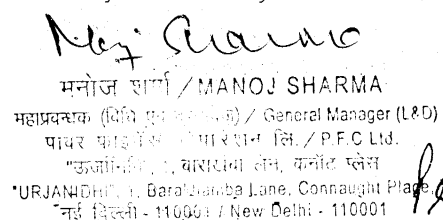 Manoj Sharma
मनोज शर्मा / MANOJ SHARMA
महाप्रबन्धक (विधि एवं / General Manager (L&D)
पावर फाइनेंस कॉर्पोरेशन लि. / P.F.C Ltd.
"ऊर्जानिधि", 1, बाराखंबा लेन, कनॉट प्लेस
"URJANIDHI", 1, Barakhamba Lane, Connaught Place,
नई दिल्ली - 110001 / New Delhi - 110001